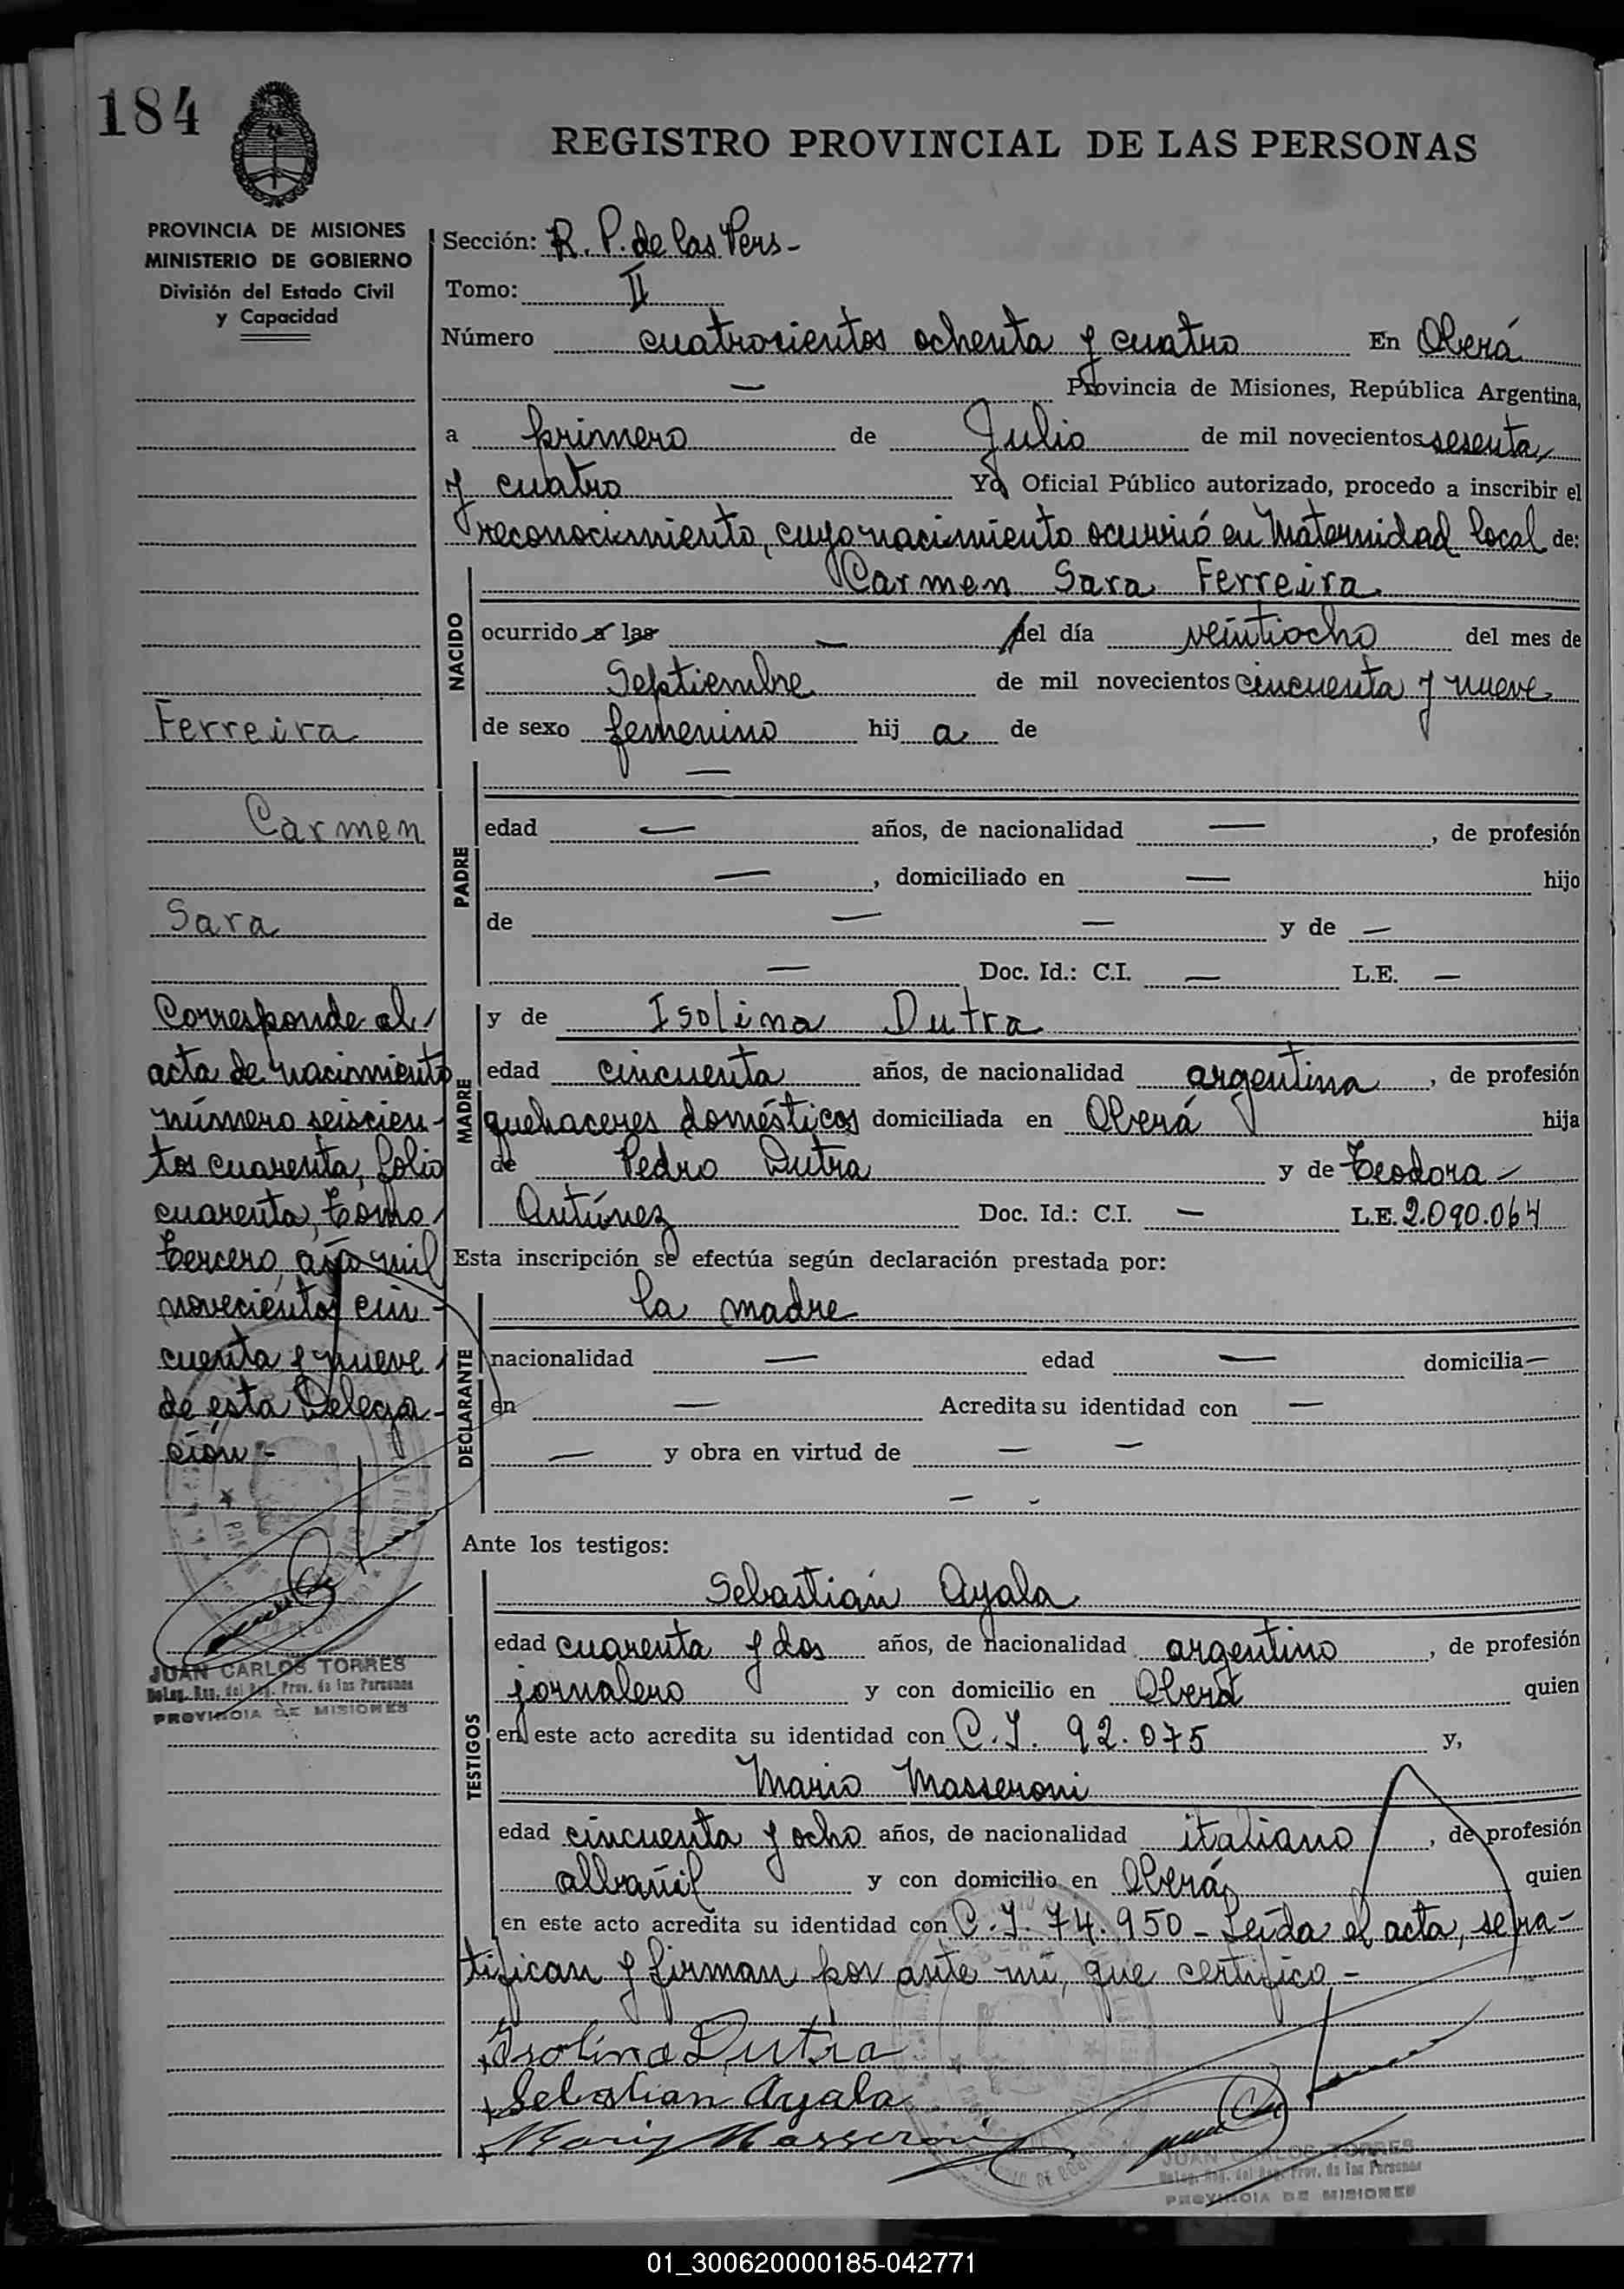 184
REGISTRO PROVINCIAL DE LAS PERSONAS
PROVINCIA DE MISIONES
MINISTERIO DE GOBIERNO
División del Estado Civil
y Capacidad
Ferreira
Carmen
Sara
Corresponde al
acta de nacimiento
número seiscien-
tos cuarenta, folio
cuarenta, Tomo
tercero, año mil
novecientos cin-
cuenta y nueve
de esta Delega-
ción-
JUAN CARLOS TORRES
Deleg. Reg. del Reg. Prov. de las Personas
PROVINCIA DE MISIONES
Sección: R. P. de las Pers-
Tomo: II
Número cuatrocientos ochenta y cuatro En Oberá
— Provincia de Misiones, República Argentina,
a primero de Julio de mil novecientos sesenta
y cuatro Yo, Oficial Público autorizado, procedo a inscribir el
reconocimiento, cuyo nacimiento ocurrió en Maternidad local de:
NACIDO
Carmen Sara Ferreira
ocurrido a las — del día veintiocho del mes de
Septiembre de mil novecientos cincuenta y nueve
de sexo femenino hij a de
PADRE
—
edad — años, de nacionalidad —, de profesión
—, domiciliado en — hijo
de — — y de —
— Doc. Id.: C.I. — L.E. —
MADRE
y de Isolina Dutra
edad cincuenta años, de nacionalidad argentina, de profesión
quehaceres domésticos domiciliada en Oberá hija
de Pedro Dutra y de Teodora
Antúnez Doc. Id.: C.I. — L.E. 2.090.064
Esta inscripción se efectúa según declaración prestada por:
DECLARANTE
la madre
nacionalidad — edad — domicilia—
en — Acredita su identidad con —
— y obra en virtud de — —
— -
Ante los testigos:
TESTIGOS
Sebastián Ayala
edad cuarenta y dos años, de nacionalidad argentino, de profesión
jornalero y con domicilio en Oberá quien
en este acto acredita su identidad con C.I. 92.075 y,
Mario Masseroni
edad cincuenta y ocho años, de nacionalidad italiano, de profesión
albañil y con domicilio en Oberá, quien
en este acto acredita su identidad con C.I. 74.950 - Leída el acta, se ra-
tifican y firman por ante mí, que certifico-
Isolina Dutra
Sebastian Ayala
Mario Masseroni
JUAN CARLOS TORRES
Deleg. Reg. del Reg. Prov. de las Personas
PROVINCIA DE MISIONES
01_300620000185-042771